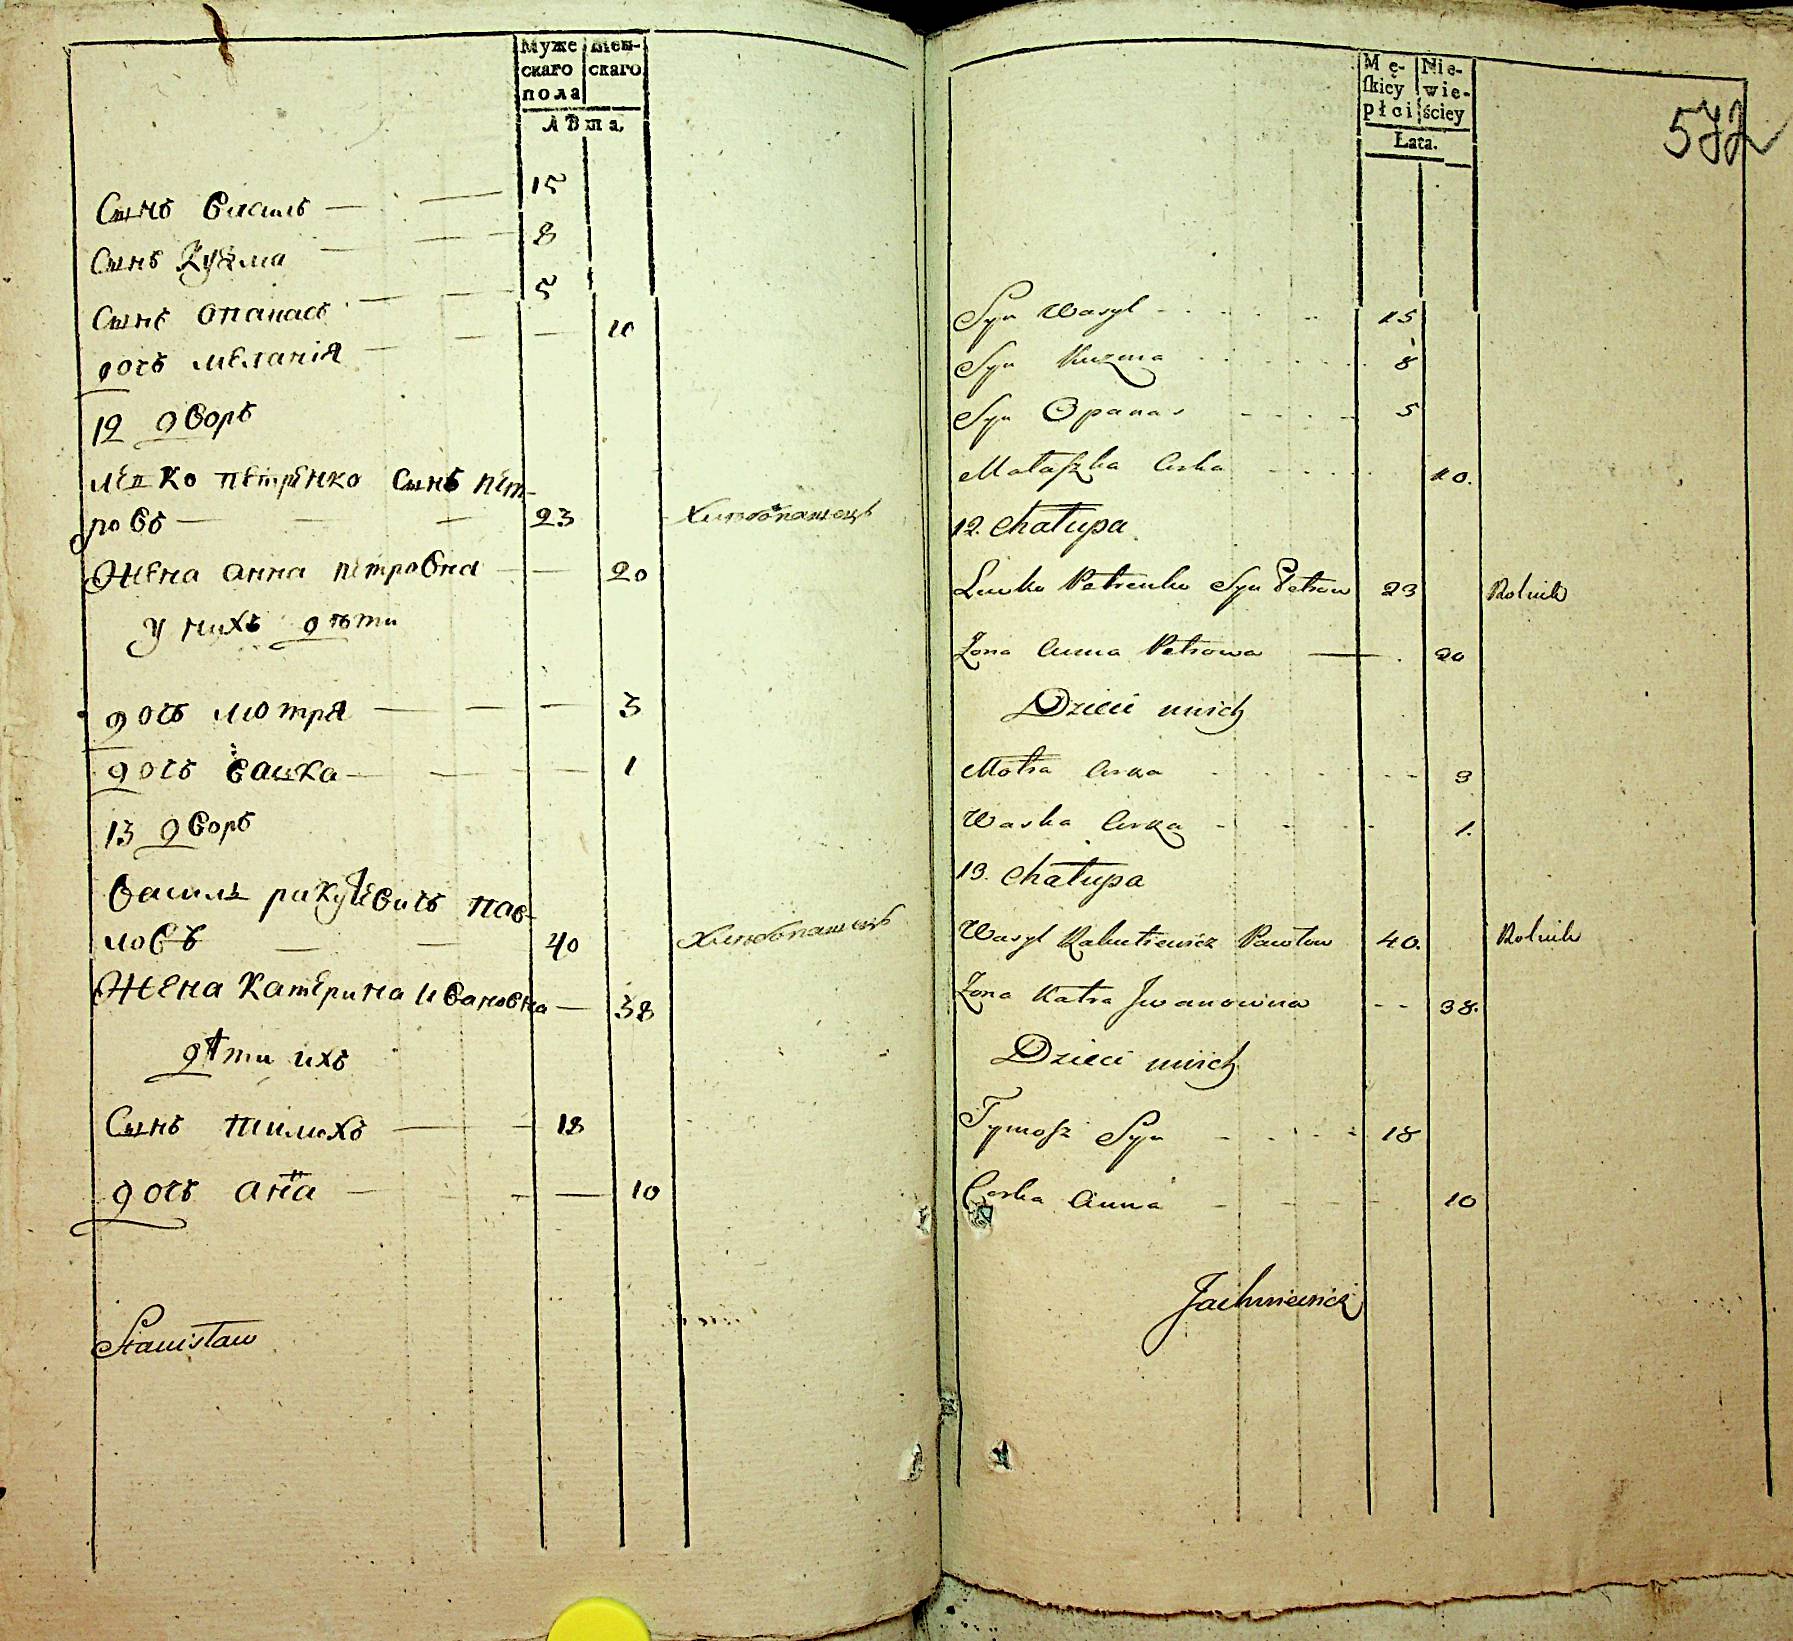 Муже
скаго
пола
Жен-
скаго
лѣта,
Сынъ Василь — — 15
Сынъ Кузма — — 8
Сынъ Опанасъ — — 5
дочь Меланія — — — 10
12 дворъ
Лецко Петренко Сынъ Пет-
ровъ — — — 23 Хлѣбопашецъ
Жена Анна Петровна — — 20
у нихъ дѣти
дочь Мотря — — — 3
дочь Вашка — — — 1
13 дворъ
Василь Пав-
ловъ — — 40 Хлѣбопашецъ
Жена Катерина Ивановна — 38
дѣти ихъ
Сынъ Тимохъ — — 18
дочь Анна — — — 10
Stanisław
Mę-
skiey
płci
Nie-
wie-
ściey
Lata.
572
Syn Wasyl 15
Syn Kuzma 8
Syn Opanas 5
Małaszka Corka 10.
12. Chałupa
Lecko Petrenko Syn Petrow 23 Rolnik
Żona Anna Petrowa — 20
Dzieci u nich
Motra Corka 3
Waska Corka 1.
13. Chałupa
Wasyl Rakutiewicz Pawłow 40. Rolnik
Żona Katra Iwanowna 38.
Dzieci u nich
Tymosz Syn 18
Corka Anna 10
Jachniewicz